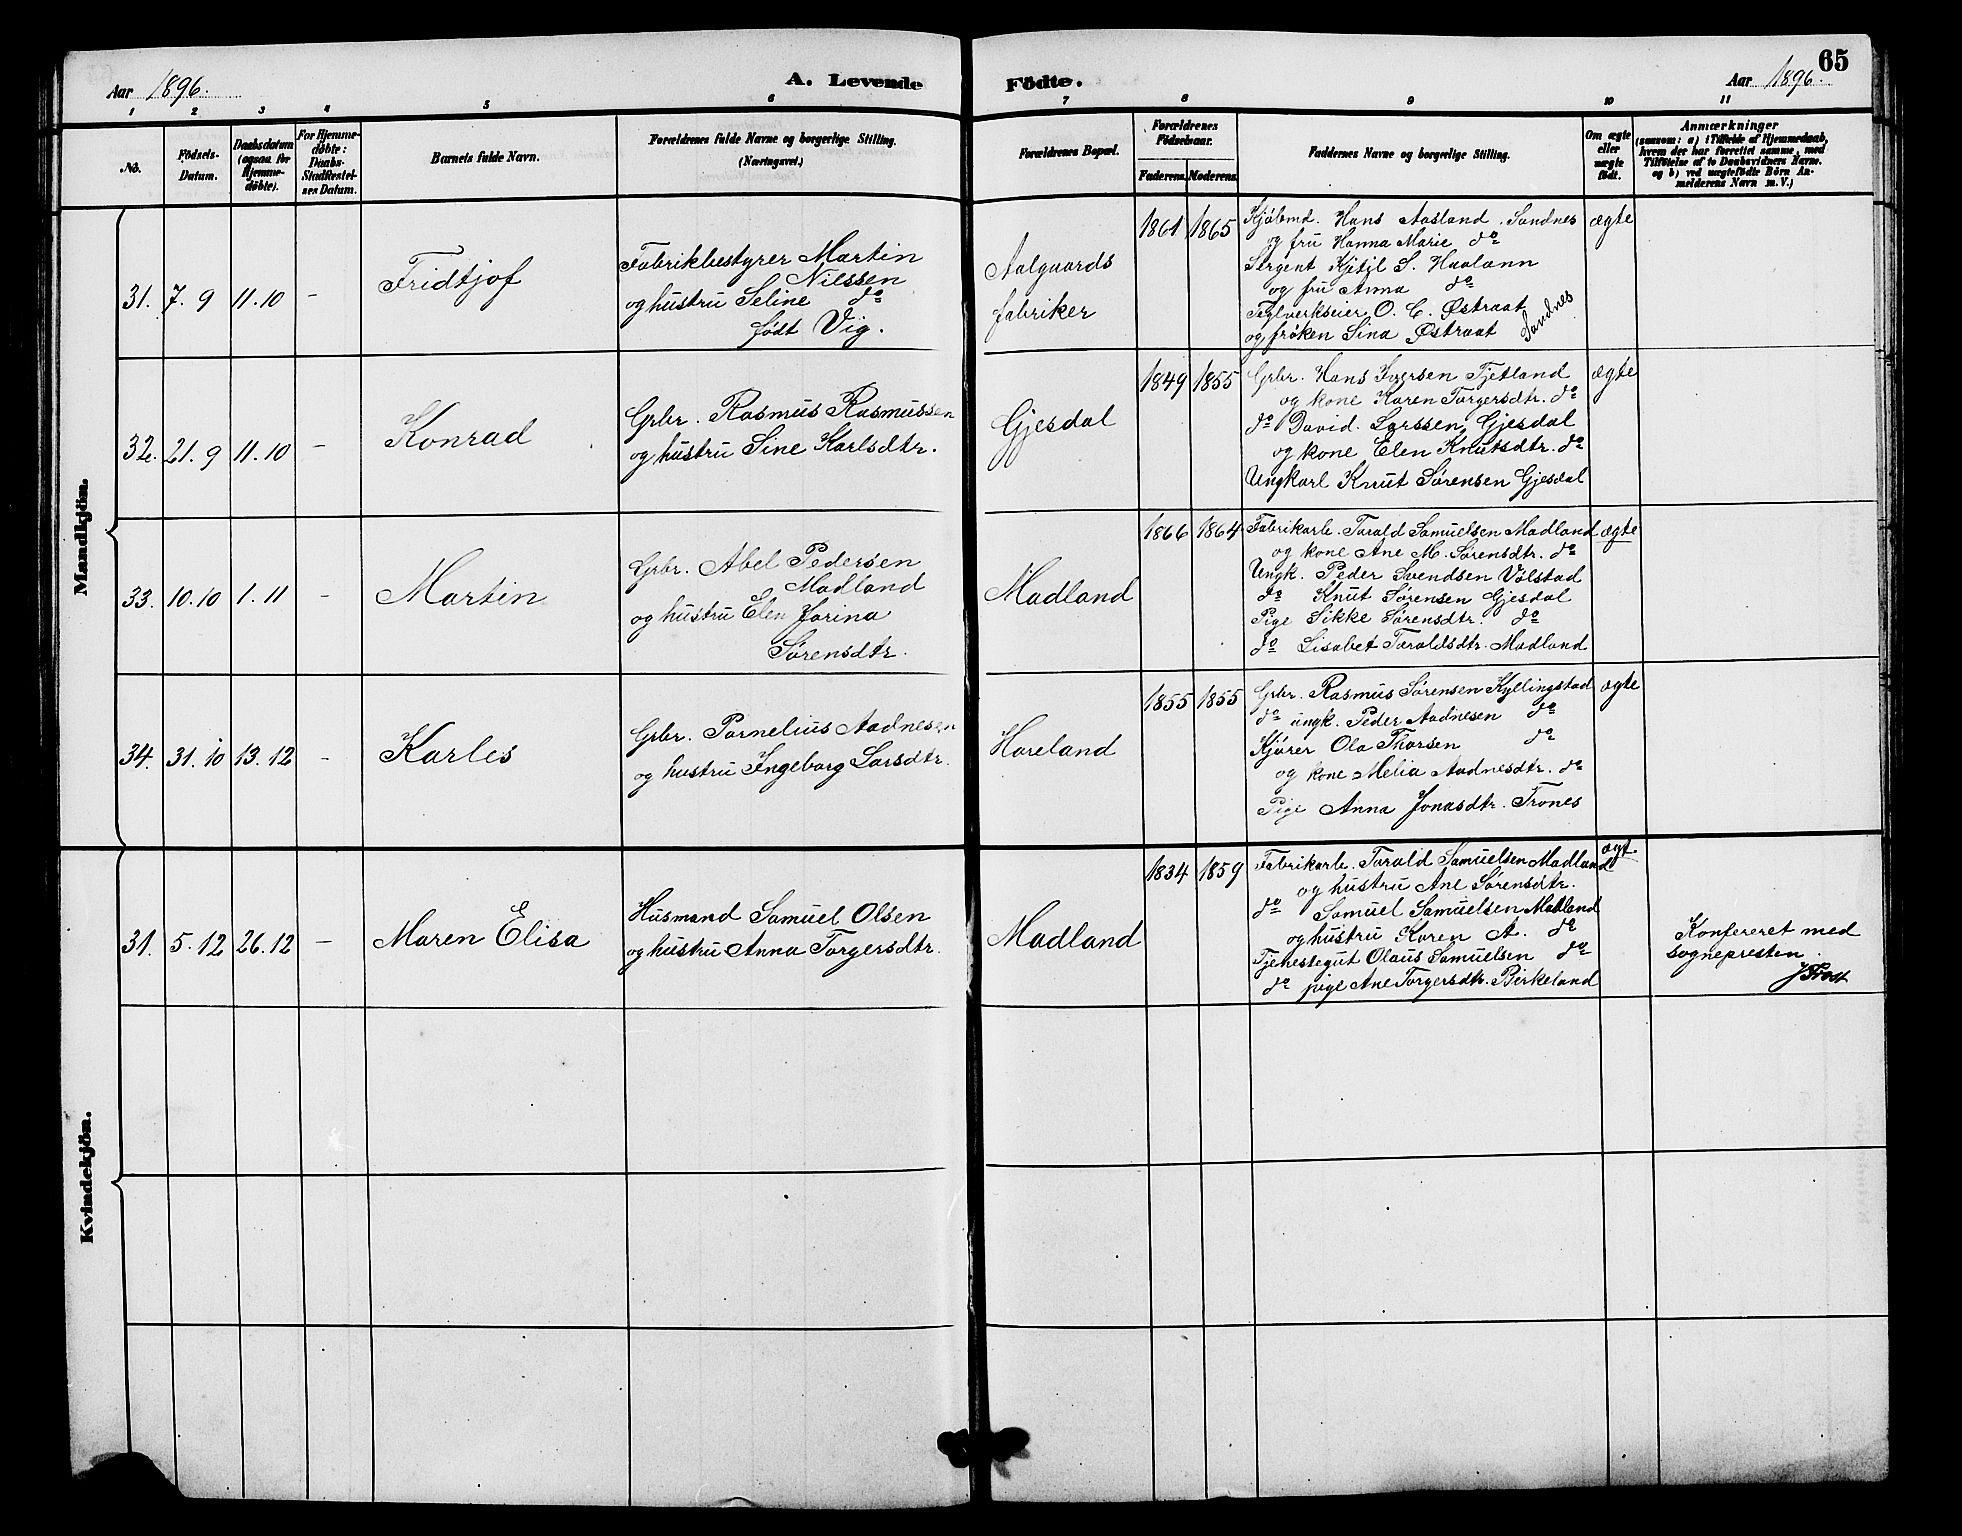 65
Aar 1896.
A. Levende
Födte.
Aar 1896.
1 2 3 4 5 6 7 8 9 10 11
No.
Födsels-
Datum.
Daabsdatum
(ogsaa for
Hjemme-
döbte).
For Hjemme-
döbte:
Daabs-
Stadfæstel-
ses Datum.
Barnets fulde Navn.
Forældrenes fulde Navne og borgerlige Stilling.
(Næringsvei.)
Forældrenes Bopæl.
Forældrenes
Födselsaar.
Faderens. Moderens.
Faddernes Navne og borgerlige Stilling.
Om ægte
eller
uægte
födt.
Anmærkninger
(saasom: a) i Tilfælde af Hjemmedaab,
hvem der har forrettet samme, med
Tilföielse af to Daabsvidners Navne.
og b) ved uægtefödte Börn An-
melderens Navn m. V.)
Mandkjön.
31. 7. 9 11. 10 –
Fridtjof
Fabrikbestyrer Martin
Nilssen
og hustru Seline do
født Vig.
Aalgaards
fabriker
1861 1865
Kjøbmd. Hans Aasland, Sandnes
og fru Hanna Marie do
Sergent Kjetil S. Haaland
og fru Anna do
Teglverkseier O. C. Østraat
og frøken Sina Østraat Sandnes
ægte
32. 21. 9 11. 10 –
Konrad
Grbr. Rasmus Rasmussen
og hustru Sine Karlsdtr.
Gjesdal
1849 1855
Grbr. Hans Iversen Tjetland
og kone Karen Torgersdtr. do
do David Larssen, Gjesdal
og kone Elen Knutsdtr. do
Ungkarl Knut Sørensen Gjesdal
ægte
33. 10. 10 1. 11 –
Martin
Grbr. Abel Pedersen
Madland
og hustru Elen Jorina
Sørensdtr.
Madland
1866 1864
Fabrikarb. Tarald Samuelsen Madland
og kone Ane M. Sørensdtr. do
Ungk. Peder Svendsen Vølstad
do Knut Sørensen Gjesdal
Pige Sikke Sørensdtr. do
do Lisabet Taraldsdtr. Madland
ægte
34. 31. 10 13. 12 –
Karles
Grbr. Pornelius Aadnesen
og hustru Ingeborg Larsdtr.
Horeland
1855 1855
Grbr. Rasmus Sørensen Kyllingstad
do ungk. Peder Aadnesen do
Kjører Ola Thorsen do
og kone Melia Aadnesdtr. do
Pige Anna Jonasdtr. Trones
ægte
Kvindekjön.
31. 5. 12 26. 12 –
Maren Elisa
Husmand Samuel Olsen
og hustru Anna Torgersdtr.
Madland
1834 1859
Fabrikarb. Tarald Samuelsen Madland
og hustru Ane Sørensdtr.
do Samuel Samuelsen Madland
og hustru Karen A. do
Tjenestegut Olaus Samuelsen do
do pige Ane Torgersdtr. Birkeland
ægt
Konfereret med
sognepresten.